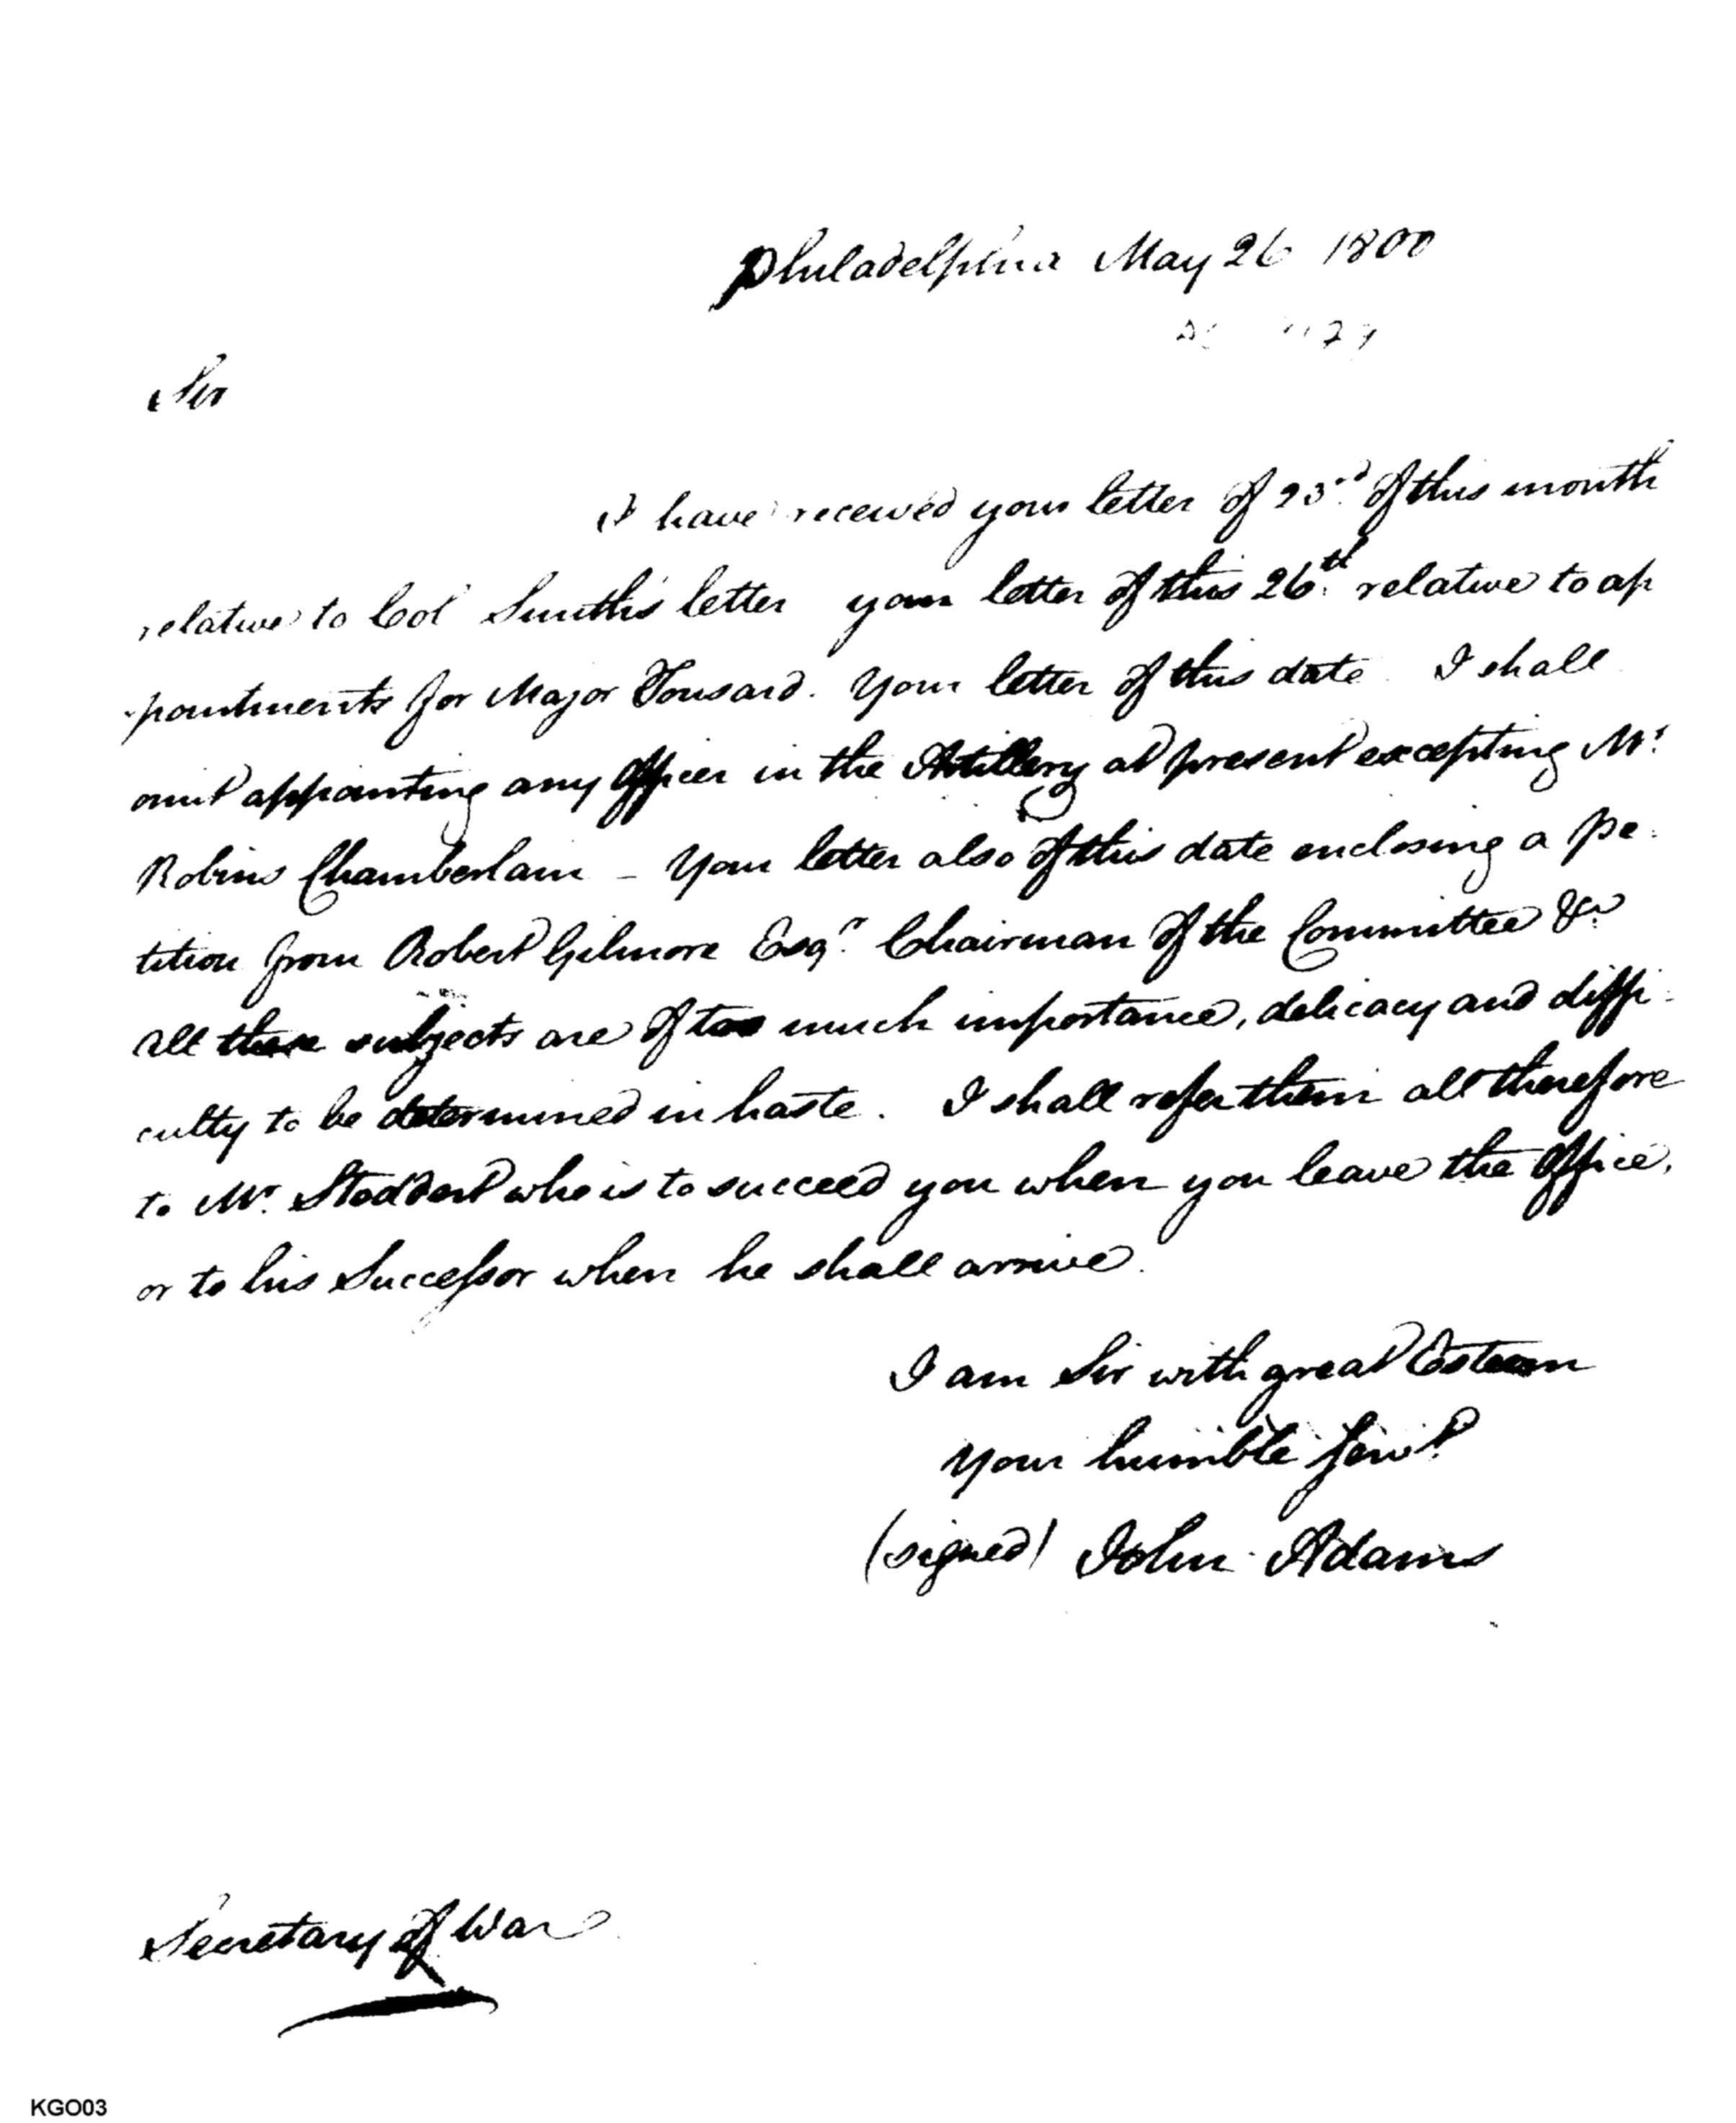 Philadelphia May 26 1800
Sir
I have received your letter of 23rd of this month
relative to Col Smith's letter your letter of this 26th relative to ap
pointments for Major Tousard. Your letter of this date. I shall
omit appointing any officer in the Artillery at present excepting Mr.
Robins Chamberlain - Your letter also of this date enclosing a pe
tition from Robert Gilmore Esqr. Chairman of the Committee &c
All these subjects are of too much importance, delicacy and diffi
culty to be determined in haste. I shall refer them all therefore
to Mr. Stoddert who is to succeed you when you leave the office,
or to his Successor when he shall arrive.
I am Sir with great Esteem
Your humble Servt.
(signed) John Adams
Secretary of War
KGO03